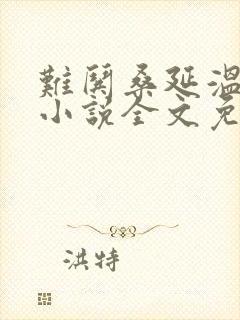 難鬨桑延溫
小說全文免
洪特